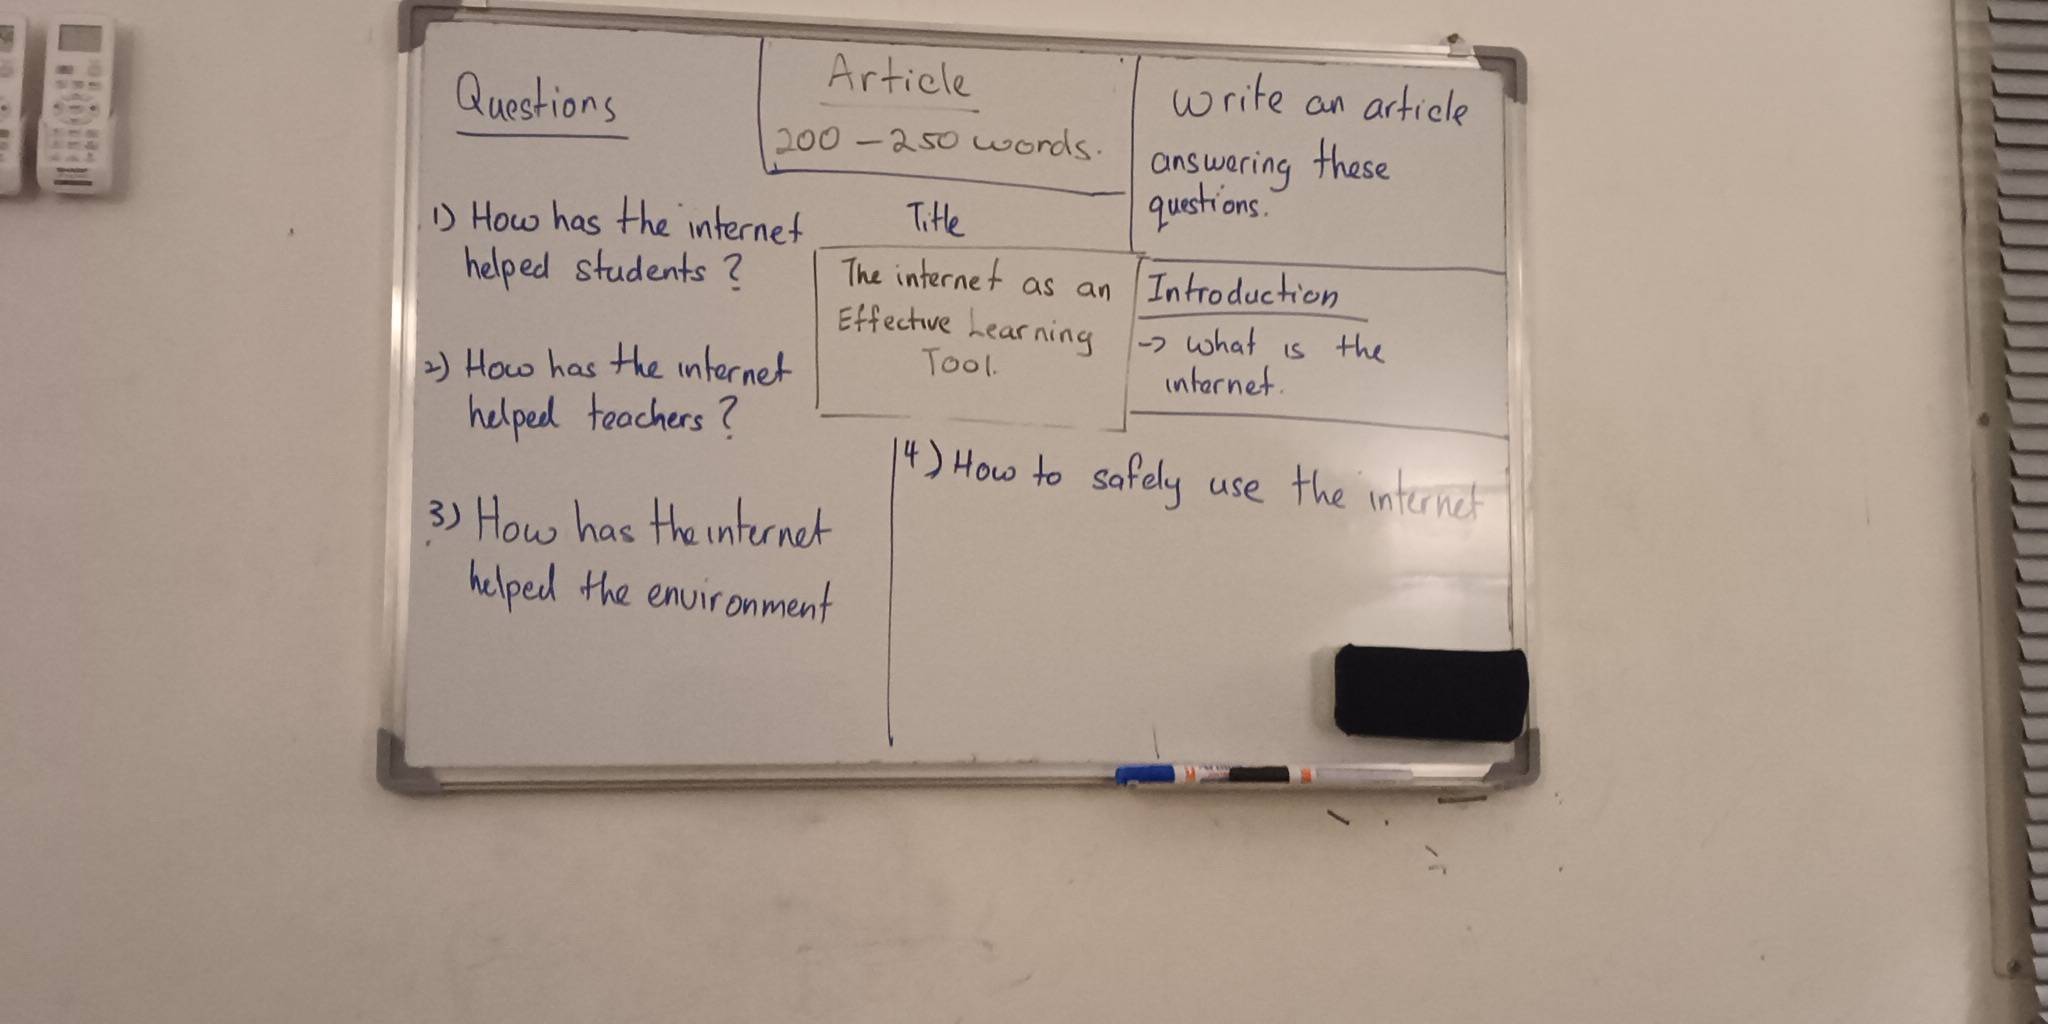 Questions
1) How has the internet
helped students?
2) How has the internet
helped teachers?
3) How has the internet
helped the environment
Article
200 - 250 words.
Title
The internet as an
Effective Learning
Tool.
Write an article
answering these
questions.
Introduction
→ what is the
internet.
4) How to safely use the internet